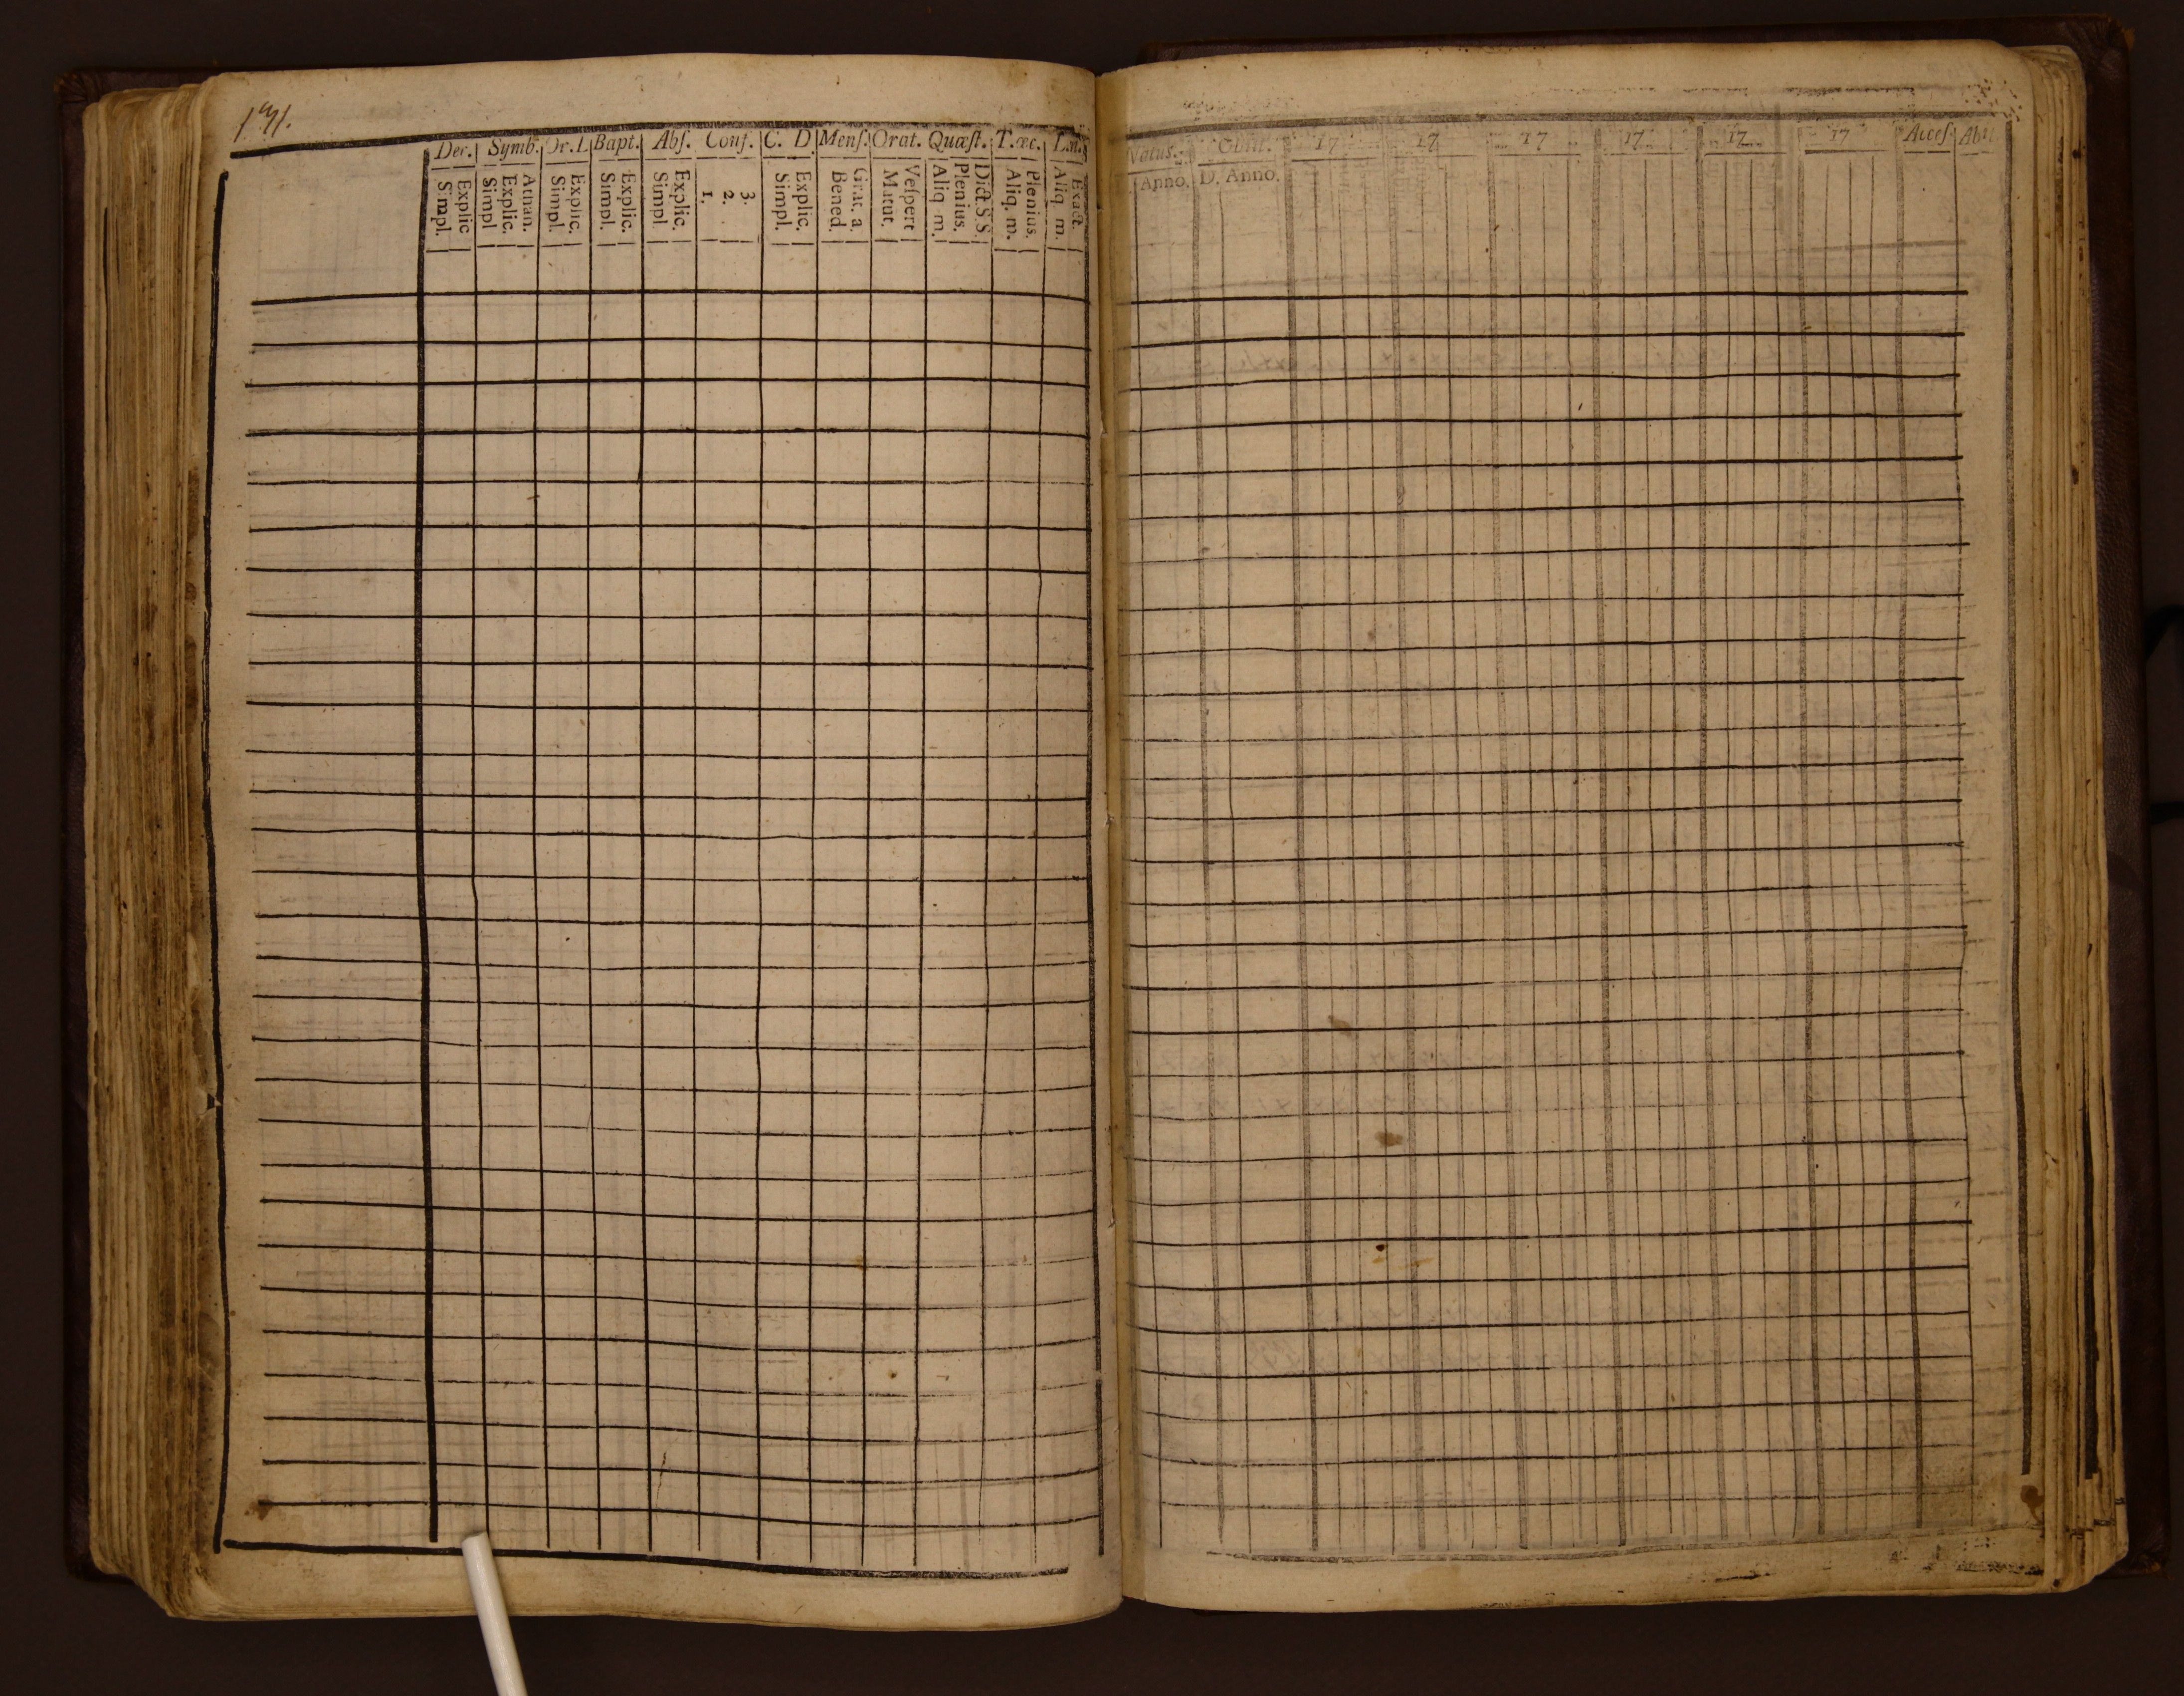 171.
Dec. Symb. Or. D Bapt. Abſ. Conf. C. D Menſ. Orat. Quæſt. T. œc. L. n.
Simpl. Explic Simpl Explic. Athan. Simpl. Explic. Simpl. Explic. Simpl Explic. 1. 2. 3. Simpl. Explic. Bened. Grat. a Matut. Veſpert Aliq m. Plenius. Dict. S. S. Aliq. m. Plenius. Aliq m. Exact.
Natus. Obiit. 17 17 17 17 17 17 Acceſ Abii
Anno. D. Anno.